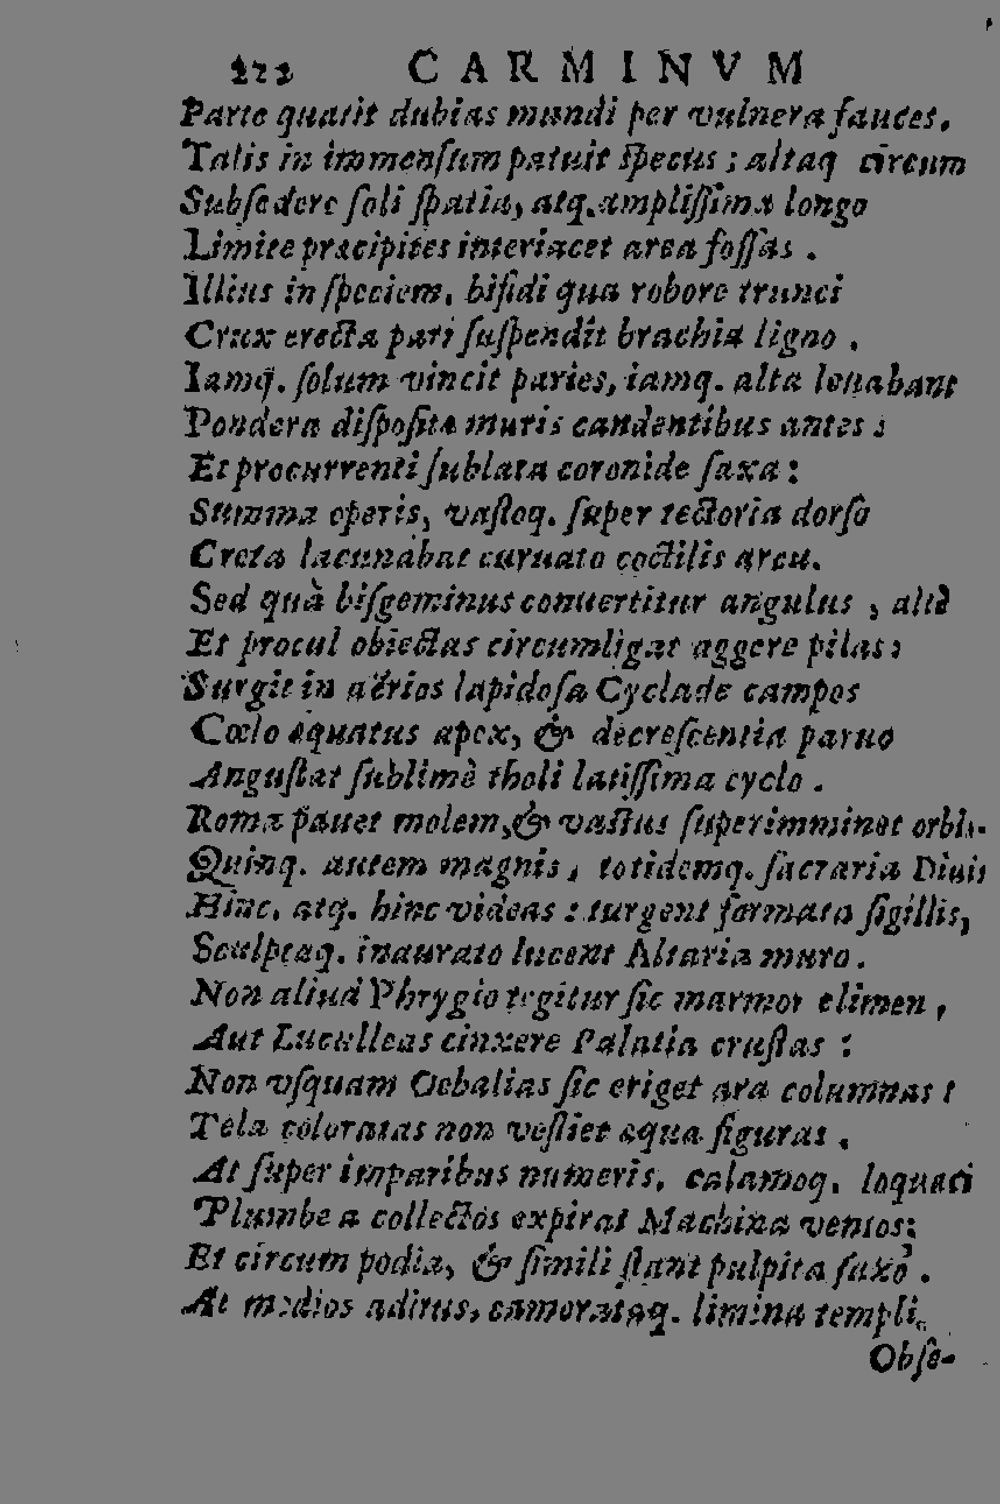 222 CARMINVM
Parte quatit dubias mundi per vulnera fauces.
Talis in immensum patuit specus; altaq circum
Subsedere soli spatia, atq. amplissima longo
Limite præcipites interiacet area fossas.
Illius in speciem, bifidi qua robore trunci
Crux erecta pari suspendit brachia ligno.
Iamq. solum vincit paries, iamq. alta leuabant
Pondera disposita muris candentibus antes:
Et procurrenti sublata coronide saxa:
Summa operis, vastoq. super tectoria dorso
Creta lacunabat curuato coctilis arcu.
Sed quà bisgeminus conuertitur angulus, altè
Et procul obiectas circumligat aggere pilas;
Surgit in aërios lapidosa Cyclade campos
Cœlo æquatus apex, & decrescentia paruo
Angustat sublimè tholi latissima cyclo.
Roma pauet molem, & vastus superimminet orbi.
Quinq. autem magnis, totidemq. sacraria Diuis
Hinc, atq. hinc videas: turgent formata sigillis,
Sculptaq. inaurato lucent Altaria muro.
Non aliud Phrygio tegitur sic marmor elimen,
Aut Luculleas cinxere Palatia crustas:
Non vsquam Oebalias sic eriget ara columnas:
Tela coloratas non vestiet æqua figuras.
At super imparibus numeris, calamoq. loquaci
Plumbea collectos expirat Machina ventos:
Et circum podia, & simili stant pulpita saxo.
At medios aditus, limina templi.
Obse-